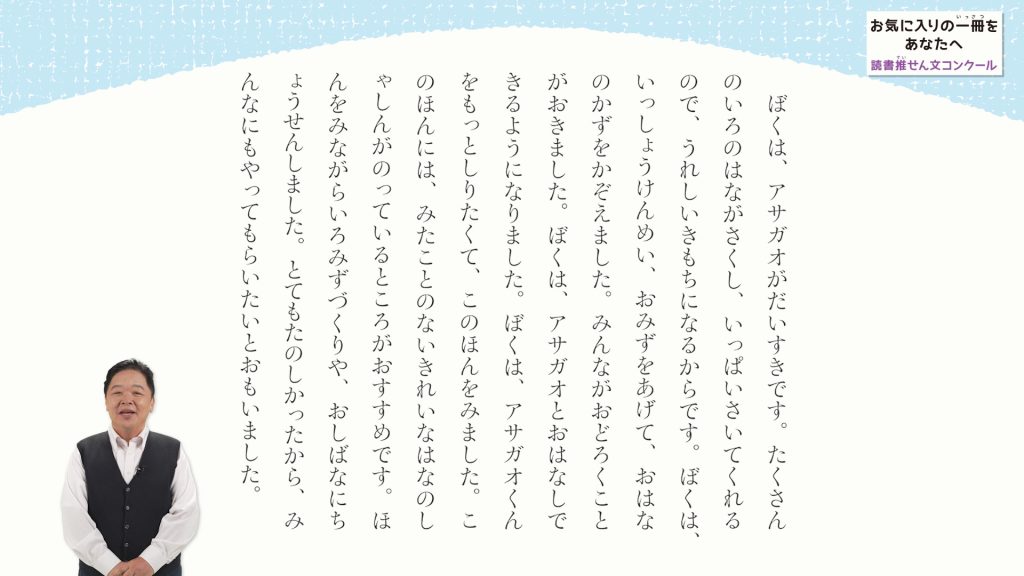 お気に入りの一冊を
いっさつ
あなたへ
読書推せん文コンクール
すい
ぼくは、アサガオがだいすきです。たくさん
のいろのはながさくし、いっぱいさいてくれる
ので、うれしいきもちになるからです。ぼくは、
いっしょうけんめい、おみずをあげて、おはな
のかずをかぞえました。みんながおどろくこと
がおきました。ぼくは、アサガオとおはなしで
きるようになりました。ぼくは、アサガオくん
をもっとしりたくて、このほんをみました。こ
のほんには、みたことのないきれいなはなのし
ゃしんがのっているところがおすすめです。ほ
んをみながらいろみずづくりや、おしばなにち
ょうせんしました。とてもたのしかったから、み
んなにもやってもらいたいとおもいました。